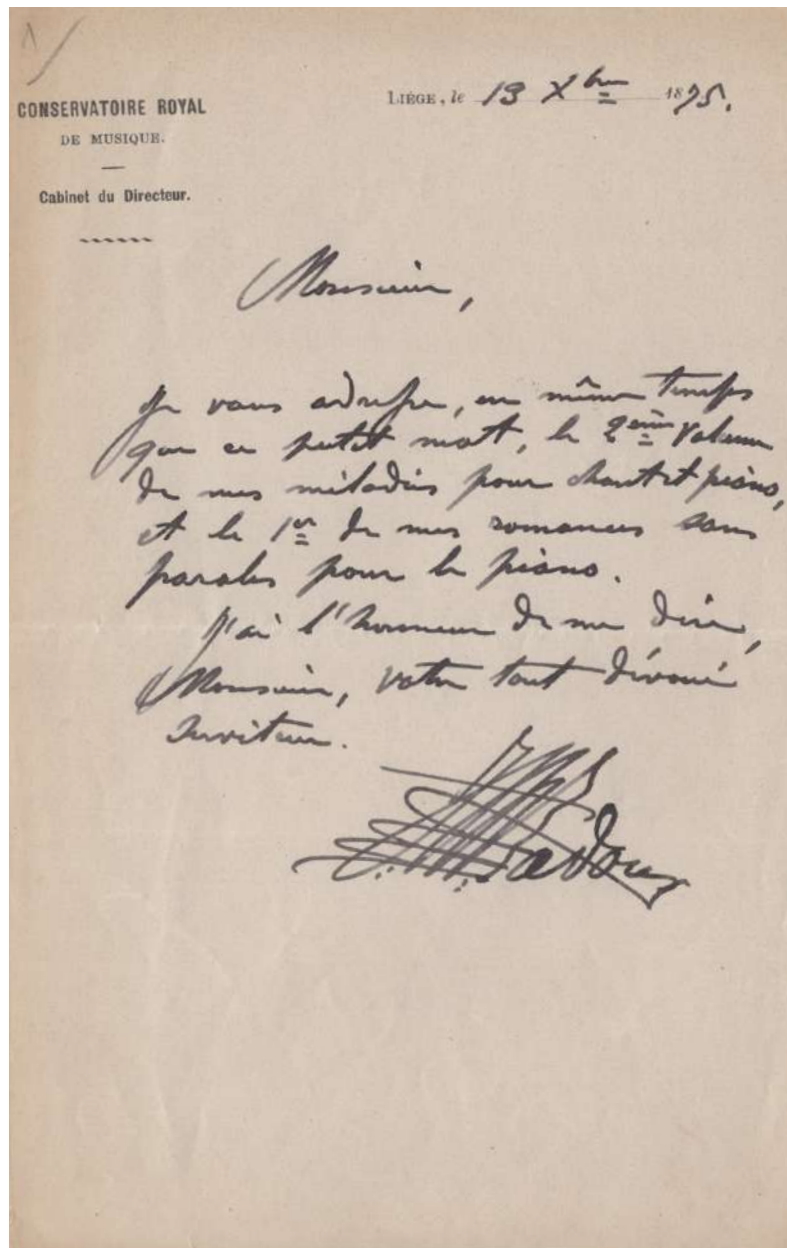 CONSERVATOIRE ROYAL
DE MUSIQUE.
Cabinet du Directeur.
LIÉGE, le 13 Xbre 1895.
Monsieur,
Je vous adresse, en même temps
que ce petit mot, le 2ème Volume
de mes mélodies pour chant et piano,
et le 1er de mes romances sans
paroles pour le piano.
J'ai l'honneur de me dire,
Monsieur, votre tout dévoué
serviteur.
Radoux